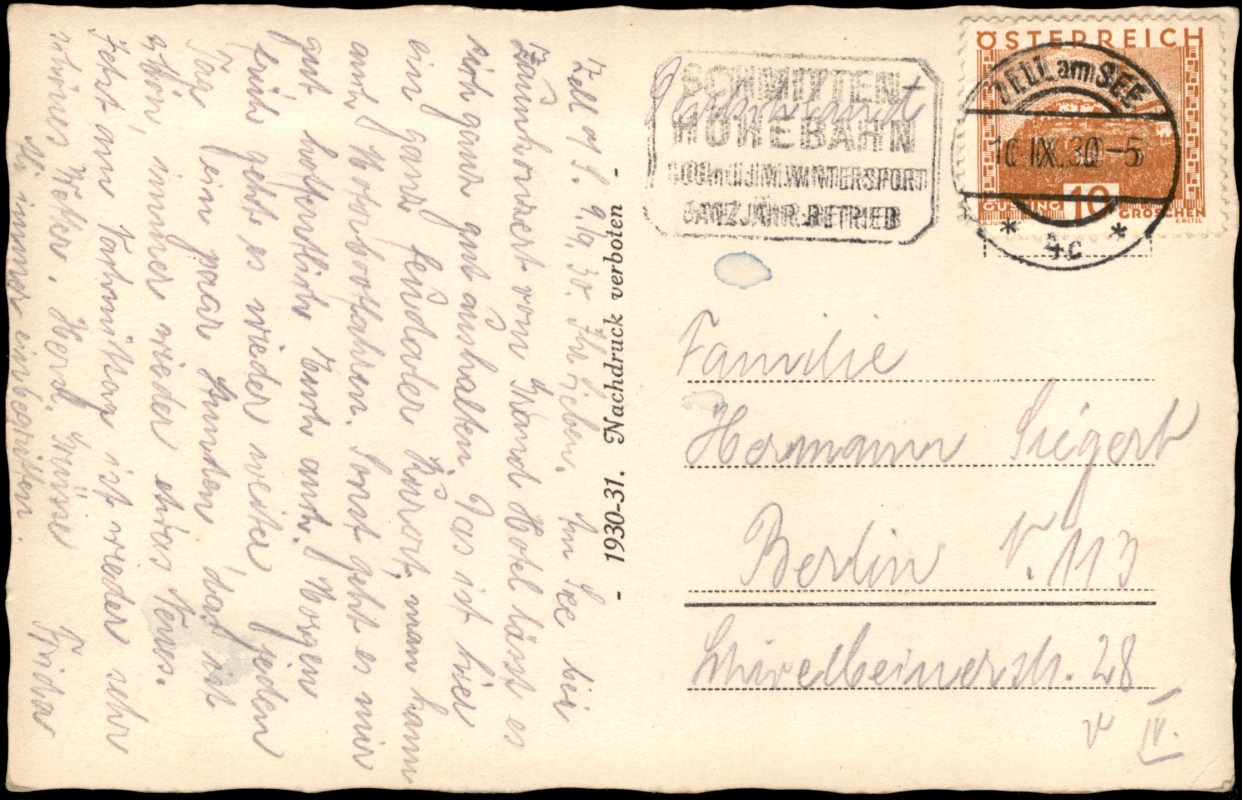 Zell a/S. 9./9. 30. Ihr Lieben. Im See bei
Zaunkonzert vom Grand Hotel lässt es
sich ganz gut aushalten. Das ist hier
ein ganz feudaler Kurort, man kann
auch Motorbootfahren. Sonst geht es mir
gut hoffentlich Euch auch. Morgen
früh gehts es wieder weiter jeden
Tag ein paar Stunden, das ist
schön, immer wieder etwas Neues.
Jetzt am Vormittag ist wieder sehr
schönes Wetter. Herzl. Grüsse
Frida
- 1930-31. Nachdruck verboten -
Postkarte
SCHMITTEN-
HÖHEBAHN
SOMM.U.IM.WINTERSPORT
GANZJÄHR.BETRIEB
ÖSTERREICH
GÜSSING 10 GROSCHEN
ZELL am SEE
10.IX.30.-5
* 4c *
Familie
Hermann Siegert
Berlin N. 113
Schivelbeinerstr. 28
v IV.